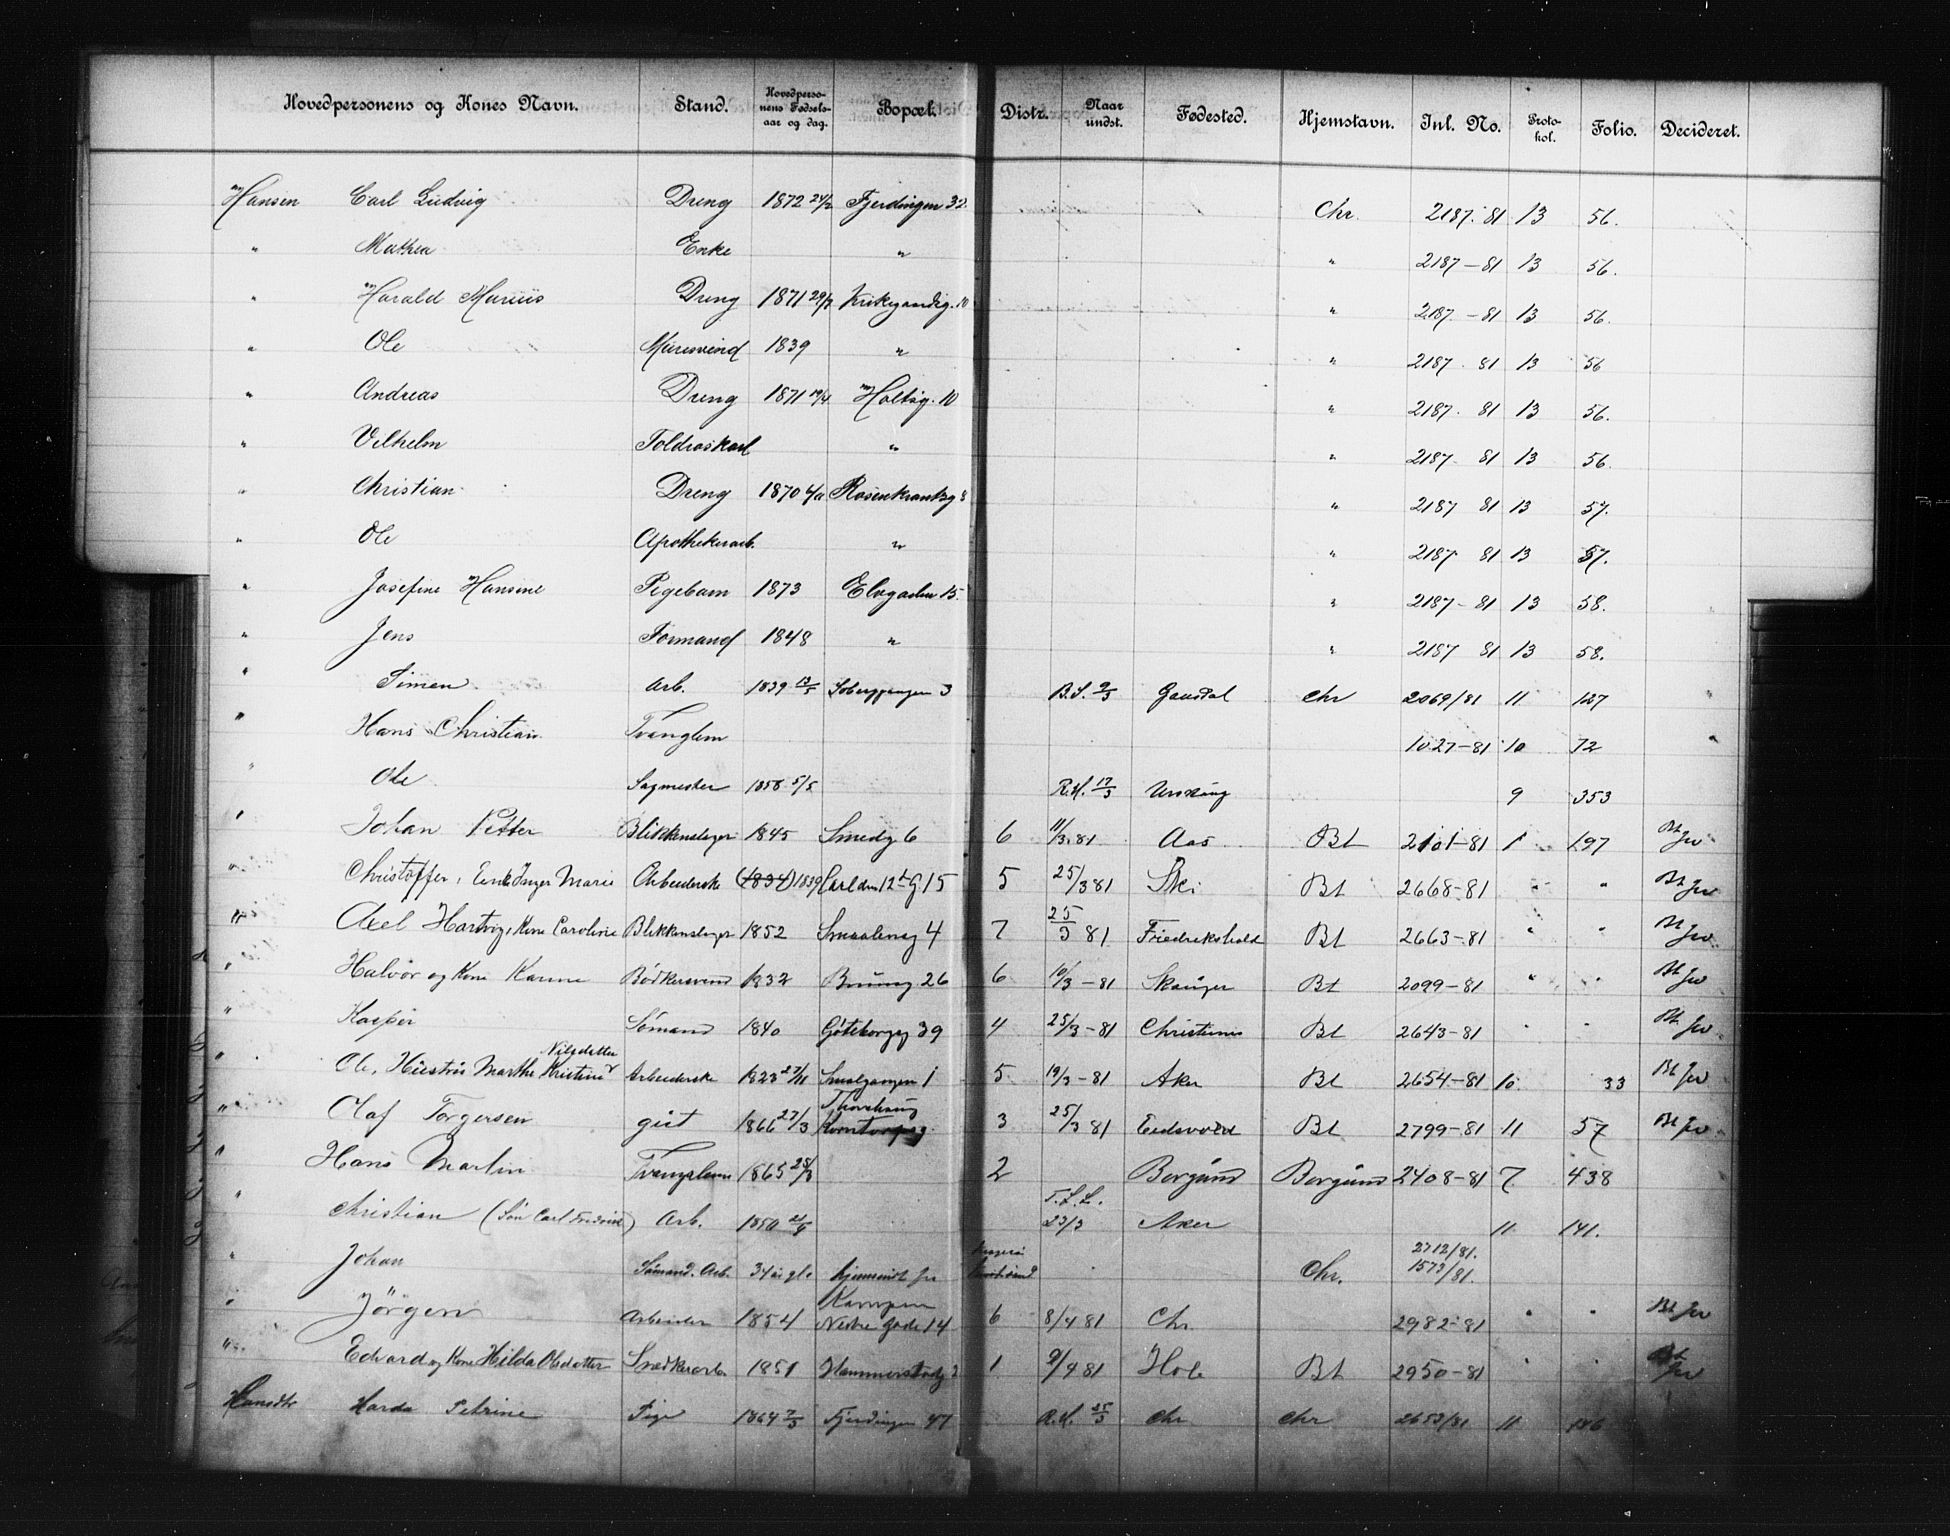 Hovedpersonens og Kones Navn. Stand. Hovedpersonens Fødselsaar og dag. Bopæl. Distr. Naar undst. Fødested. Hjemstavn. Inl. No. Protokol. Folio. Decideret.
Hansen Carl Ludvig Dreng 1872 24/2 Fjerdingen 32. Chr. 2187-81 13 56.
" Mathea Enke " " 2187-81 13 56.
" Harald Marius Dreng 1871 29/7 Kirkegaardsg. 10 " 2187-81 13 56.
" Ole Muresvend 1839 " " 2187 81 13 56
" Andreas Dreng 1871 19/4 Holtsg. 10 " 2187. 81 13 56.
" Vilhelm Toldraskarl " " 2187 81 13 56.
" Christian Dreng 1870 Rosenkrantzg 8 " 2187 81 13 57.
" Ole Apothekerarb. " " 2187 81 13 57.
" Josefine Hansine Pigebarn 1873 Elvegaden 15. " 2187-81 13 58.
" Jens Formand 1848 " " 2187 81 13 58.
" Simen Arb. 1839 13/5 3 9/3 Gausdal Chr 2069/81 11 127
" Hans Christian Tvanglem 1027-81 10 72
" Ole Sagmester 1858 5/5 R.H. 17/3 Urskoug 9 353
" Johan Petter Blikkenslager 1845 Smedg 6 6 11/3.81 Aas Bt 2101-81 1 197 Bt
" Christoffer, Enke Inger Marie Arbeiderske (1834) 1839 15 5 25/3 81 Ski Bt 2668-81 " " Bt
" Axel Hartvig, Kone Caroline Blikkenslager 1852 Smaaleneg 4 7 25/3 81 Fredrikshald Bt 2663-81 " " Bt
" Halvor og Kone Karine Bødkersvend 1832 Brunog 26 6 10/3-81 Skouger Bt 2099-81 " " Bt
" Kasper Sømand 1840 Göteborgg 39 4 25/3-81 Christiania Bt 2643-81 " " Bt
" Ole, Hustru Marthe Kristine Nilsdatter Arbeiderske 1823 27/11 Smalgangen 1 5 19/3-81 Aker Bt 2654-81 10 33 Bt
" Olaf Torgersen gut 1866 27/3 3 25/3 81 Eidsvold Bt 2799-81 11 57 Bt
" Hans Martin Tvangslem 1865 28/8 2 Borgund Borgund 2408-81 7 438
" Christian (Søn Carl Fredrik) Arb. 1850 T.L.L. 23/3 Aker 11 141.
" Johan Sømand. Arb. 34 aar gl. hjemsendt fra Chr. 2712/81. 1573/81.
" Jörgen Arbeider 1854 Kampen Nedre Gade 14 6 8/4 81 Chr. 2982-81 " " Bt
" Edvard og Kone Hilda Olsdatter Snedkerarb. 1851 Hammerstadg 3 1 9/4 81 Hole Bt 2950-81 " " Bt
Hansdtr Petrine Pige 1864 7/3 Fjerdingen 47 R.H. 25/3 Chr Chr 2653/81 11 186